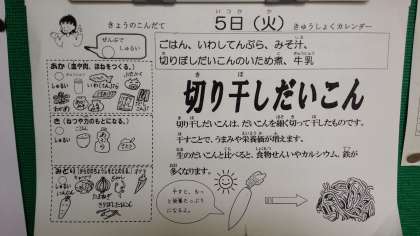 きょうのこんだて
5日（火）
きゅうしょくカレンダー
ぜんぶで
しゅるい
ごはん、いわしてんぷら、みそ汁、
切りぼしだいこんのいため煮、牛乳
あか（血や肉、ほねをつくる。）
しゅるい
き（ねつや力のもとになる。）
しゅるい
みどり
しゅるい
にんじん
たまねぎ
切り干しだいこん
切り干しだいこんは、だいこんを細く切って干したものです。
干すことで、うまみや栄養価が増えます。
生のだいこんと比べると、食物せんいやカルシウム、鉄が
多くなります。
干すと、もっと
栄養たっぷり
になるよ。